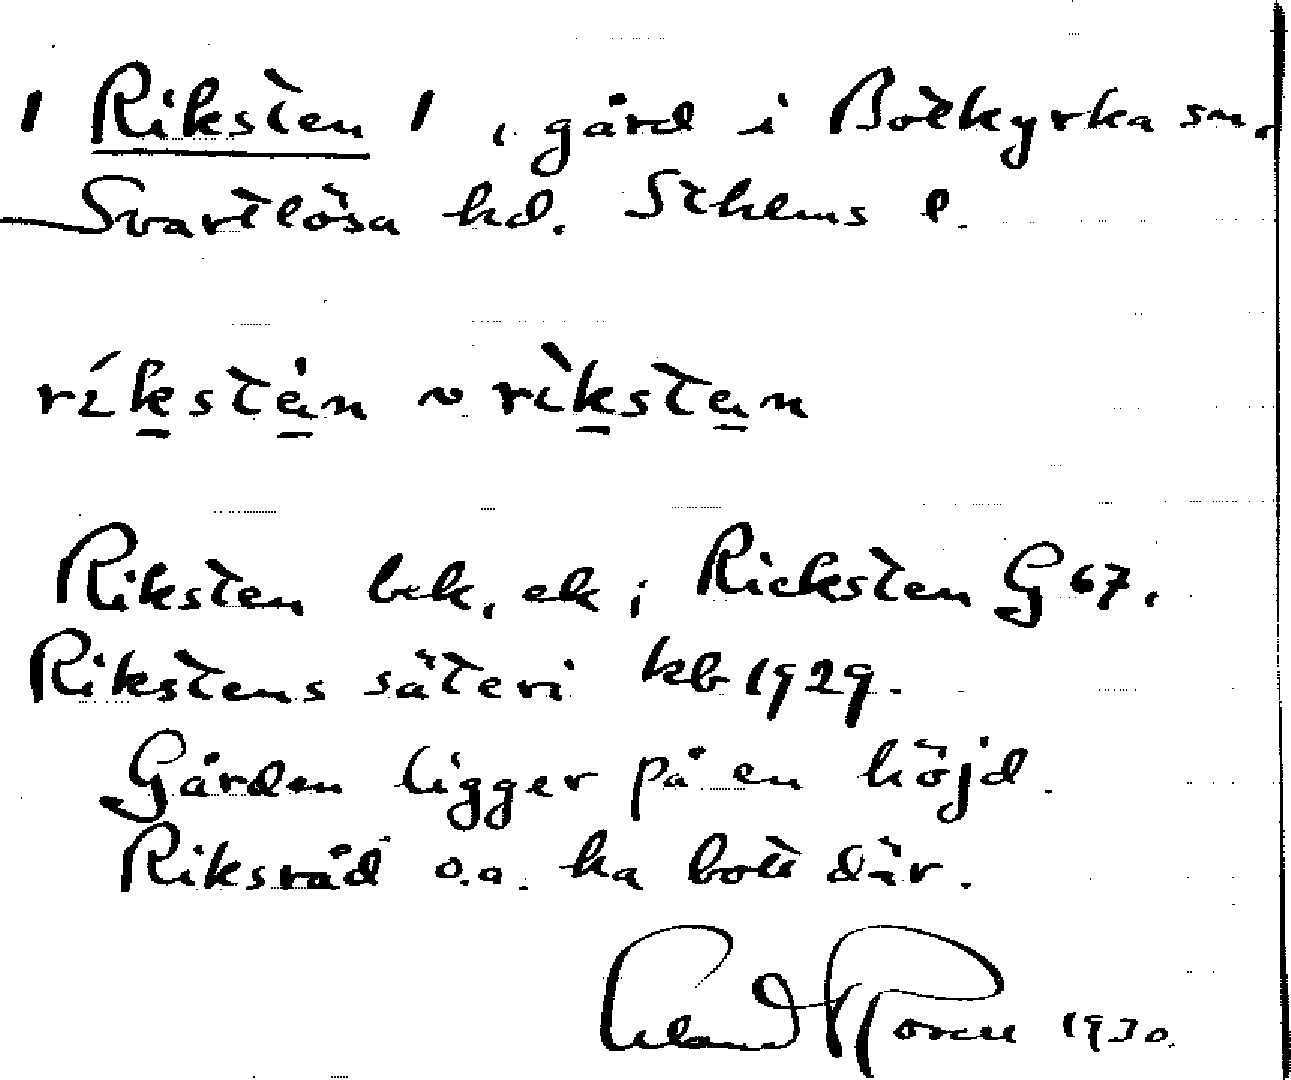 1 Riksten 1, gård i Botkyrka sn.
Svartlösa hd. Sthlms l.
ríkstèn ~ rìksten
Riksten bek. ek ; Ricksten G 67.
Rikstens säteri kb 1929.
Gården ligger på en höjd.
Riksråd o.a. ha bott där.
1930.